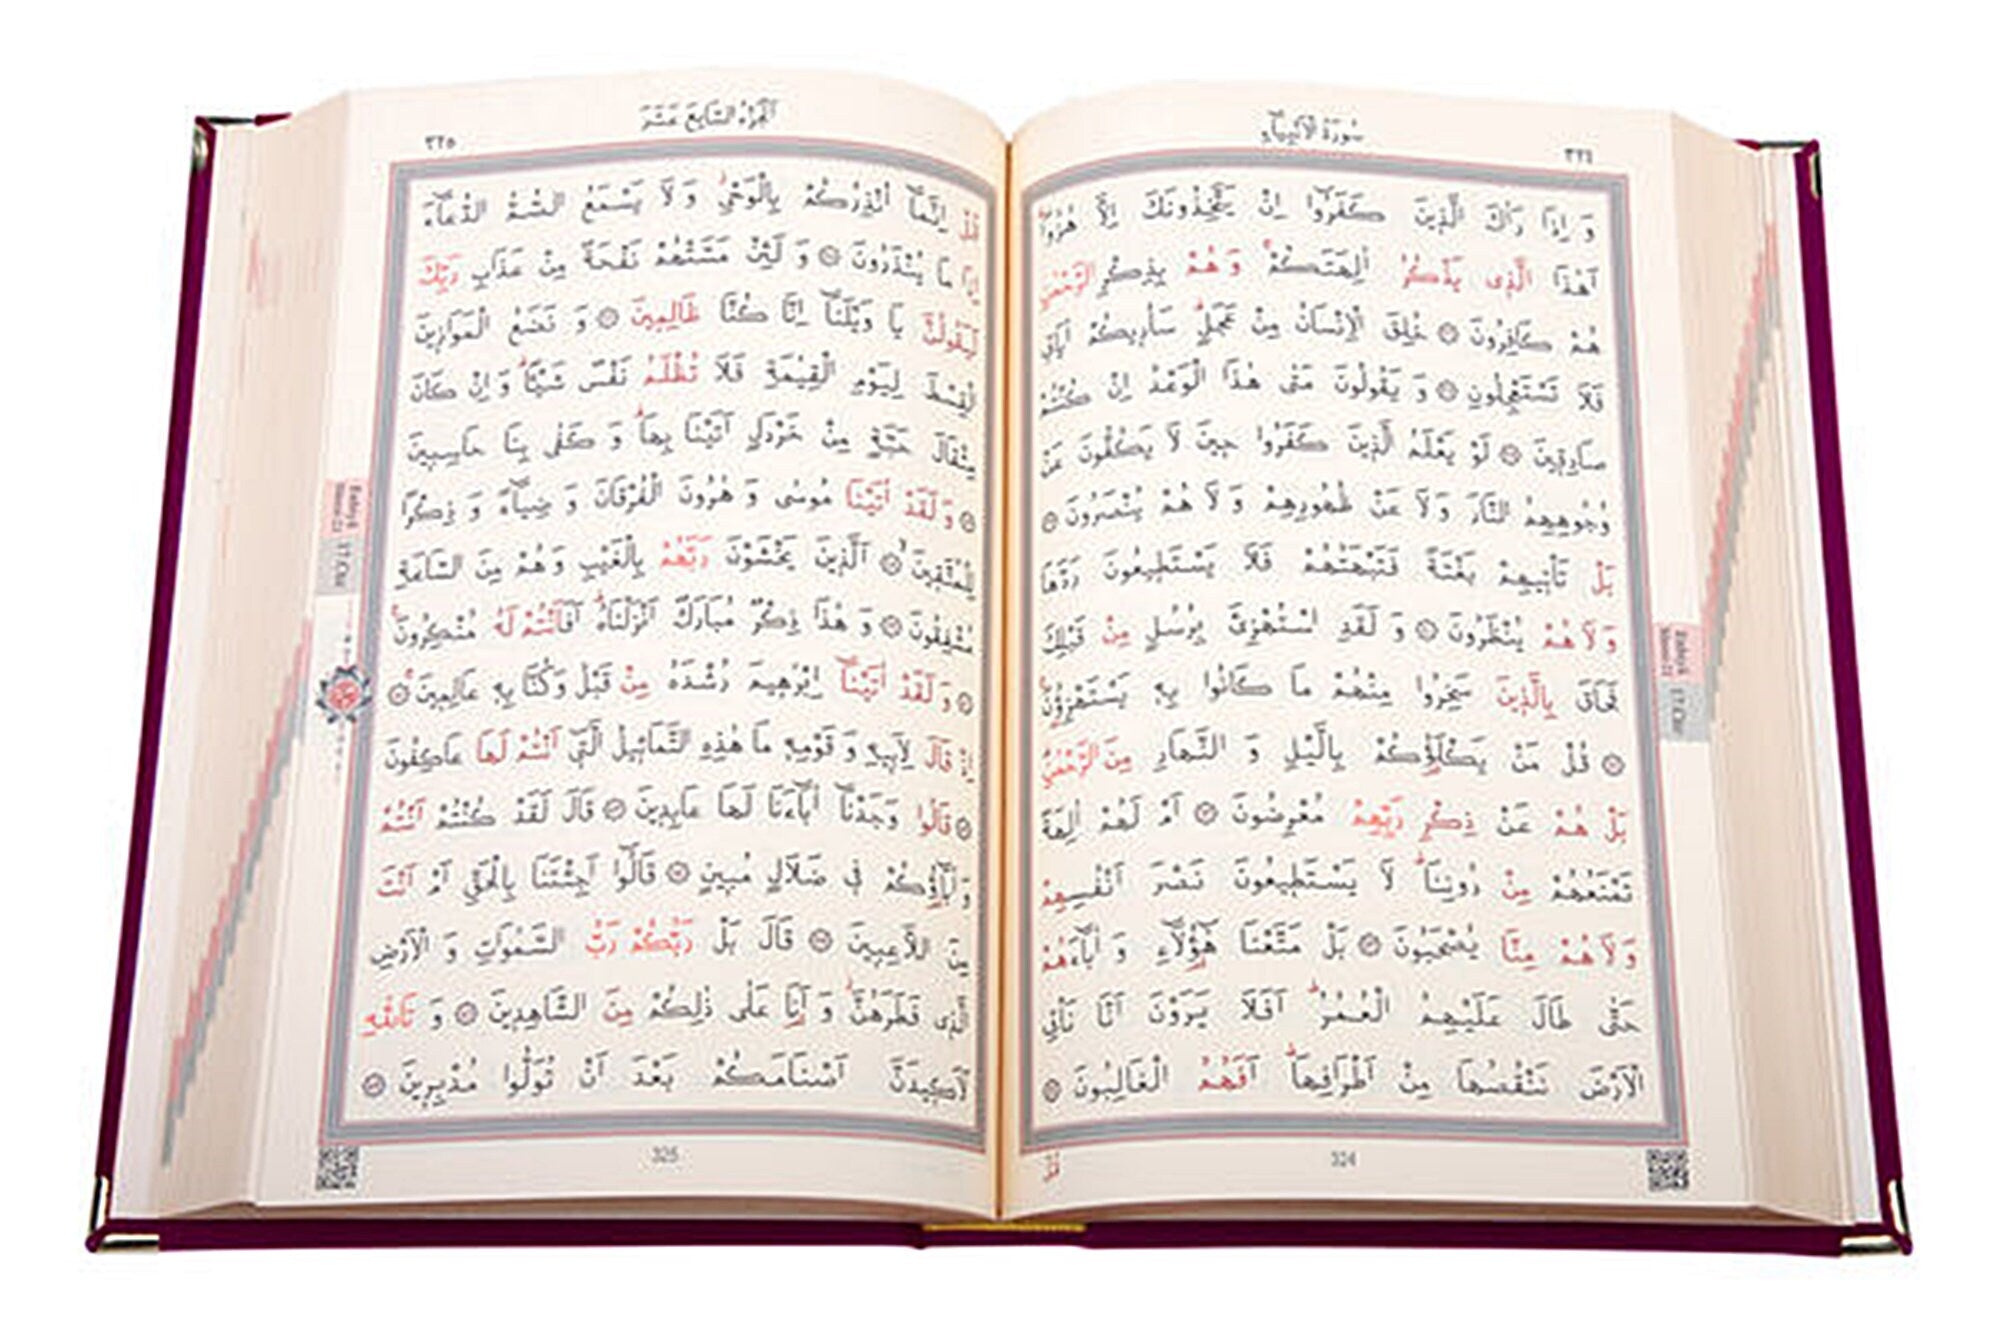 سُورَةُ الْاَنْبِيَاءِ
٣٢٤
وَ اِذَا رَاٰكَ الَّذٖينَ كَفَرُٓوا اِنْ يَتَّخِذُونَكَ اِلَّا هُزُوًاۜ
اَهٰذَا الَّذٖى يَذْكُرُ اٰلِهَتَكُمْۚ وَ هُمْ بِذِكْرِ الرَّحْمٰنِ
هُمْ كَافِرُونَ خُلِقَ الْاِنْسَانُ مِنْ عَجَلٍۜ سَاُرٖيكُمْ اٰيَاتٖى
فَلَا تَسْتَعْجِلُونِ وَ يَقُولُونَ مَتٰى هٰذَا الْوَعْدُ اِنْ كُنْتُمْ
صَادِقٖينَ لَوْ يَعْلَمُ الَّذٖينَ كَفَرُوا حٖينَ لَا يَكُفُّونَ عَنْ
وُجُوهِهِمُ النَّارَ وَ لَا عَنْ ظُهُورِهِمْ وَ لَا هُمْ يُنْصَرُونَ
بَلْ تَاْتٖيهِمْ بَغْتَةً فَتَبْهَتُهُمْ فَلَا يَسْتَطٖيعُونَ رَدَّهَا
وَ لَا هُمْ يُنْظَرُونَ وَ لَقَدِ اسْتُهْزِئَ بِرُسُلٍ مِنْ قَبْلِكَ
فَحَاقَ بِالَّذٖينَ سَخِرُوا مِنْهُمْ مَا كَانُوا بِهٖ يَسْتَهْزِؤُنَ
قُلْ مَنْ يَكْلَؤُكُمْ بِالَّيْلِ وَ النَّهَارِ مِنَ الرَّحْمٰنِ
بَلْ هُمْ عَنْ ذِكْرِ رَبِّهِمْ مُعْرِضُونَ اَمْ لَهُمْ اٰلِهَةٌ
تَمْنَعُهُمْ مِنْ دُونِنَاۜ لَا يَسْتَطٖيعُونَ نَصْرَ اَنْفُسِهِمْ
وَ لَا هُمْ مِنَّا يُصْحَبُونَ بَلْ مَتَّعْنَا هٰٓؤُلَٓاءِ وَ اٰبَٓاءَهُمْ
حَتّٰى طَالَ عَلَيْهِمُ الْعُمُرُۜ اَفَلَا يَرَوْنَ اَنَّا نَاْتِى
الْاَرْضَ نَنْقُصُهَا مِنْ اَطْرَافِهَاۜ اَفَهُمُ الْغَالِبُونَ
324
قُلْ
اَلْجُزْءُ السَّابِعَ عَشَرَ
٣٢٥
قُلْ اِنَّمَٓا اُنْذِرُكُمْ بِالْوَحْيِۘ وَ لَا يَسْمَعُ الصُّمُّ الدُّعَٓاءَ
اِذَا مَا يُنْذَرُونَ وَ لَئِنْ مَسَّتْهُمْ نَفْحَةٌ مِنْ عَذَابِ رَبِّكَ
لَيَقُولُنَّ يَا وَيْلَنَٓا اِنَّا كُنَّا ظَالِمٖينَ وَ نَضَعُ الْمَوَازٖينَ
الْقِسْطَ لِيَوْمِ الْقِيٰمَةِ فَلَا تُظْلَمُ نَفْسٌ شَيْـًٔاۜ وَ اِنْ كَانَ
مِثْقَالَ حَبَّةٍ مِنْ خَرْدَلٍ اَتَيْنَا بِهَاۜ وَ كَفٰى بِنَا حَاسِبٖينَ
وَ لَقَدْ اٰتَيْنَا مُوسٰى وَ هٰرُونَ الْفُرْقَانَ وَ ضِيَٓاءً وَ ذِكْرًا
لِلْمُتَّقٖينَۙ اَلَّذٖينَ يَخْشَوْنَ رَبَّهُمْ بِالْغَيْبِ وَ هُمْ مِنَ السَّاعَةِ
مُشْفِقُونَ وَ هٰذَا ذِكْرٌ مُبَارَكٌ اَنْزَلْنَاهُۜ اَفَاَنْتُمْ لَهُ مُنْكِرُونَ۟
وَ لَقَدْ اٰتَيْنَٓا اِبْرٰهٖيمَ رُشْدَهُ مِنْ قَبْلُ وَ كُنَّا بِهٖ عَالِمٖينَۚ
اِذْ قَالَ لِاَبٖيهِ وَ قَوْمِهٖ مَا هٰذِهِ التَّمَاثٖيلُ الَّتٖٓى اَنْتُمْ لَهَا عَاكِفُونَ
قَالُوا وَجَدْنَٓا اٰبَٓاءَنَا لَهَا عَابِدٖينَ قَالَ لَقَدْ كُنْتُمْ اَنْتُمْ
وَ اٰبَٓاؤُكُمْ فٖى ضَلَالٍ مُبٖينٍ قَالُٓوا اَجِئْتَنَا بِالْحَقِّ اَمْ اَنْتَ
مِنَ اللَّاعِبٖينَ قَالَ بَلْ رَبُّكُمْ رَبُّ السَّمٰوَاتِ وَ الْاَرْضِ
الَّذٖى فَطَرَهُنَّۘ وَ اَنَا عَلٰى ذٰلِكُمْ مِنَ الشَّاهِدٖينَ وَ تَاللّٰهِ
لَاَكٖيدَنَّ اَصْنَامَكُمْ بَعْدَ اَنْ تُوَلُّوا مُدْبِرٖينَ
325